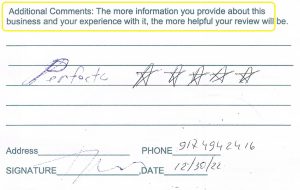 Additional Comments: The more information you provide about this
business and your experience with it, the more helpful your review will be.
Perfecto
Address PHONE 917 494 2416
SIGNATURE DATE 12/30/22